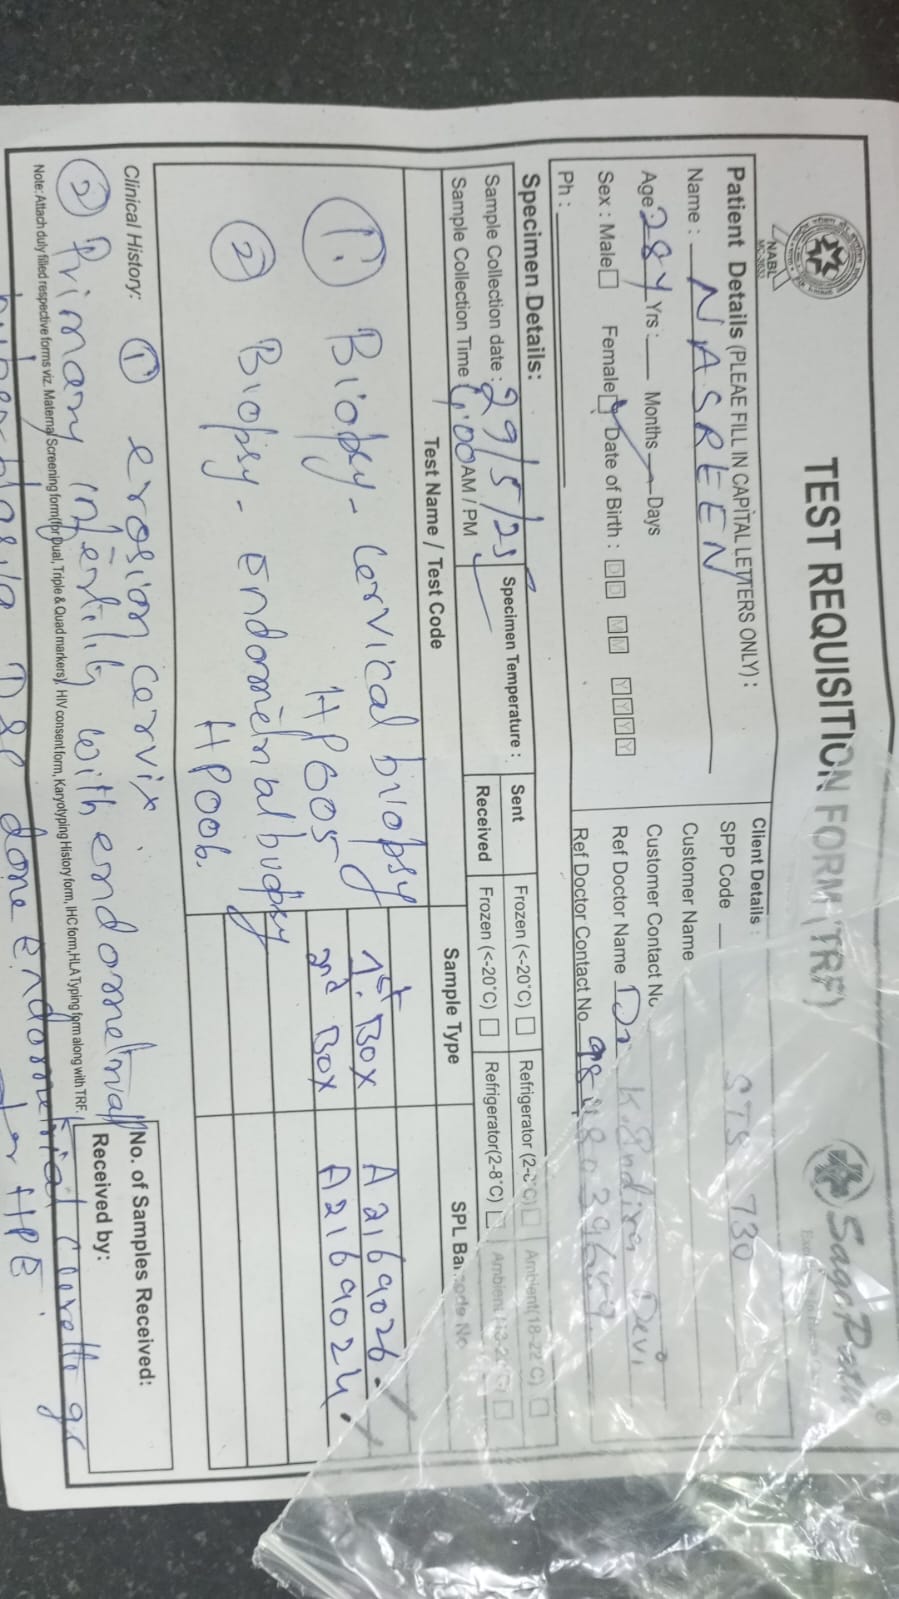 NABL
MC-2633
TEST REQUISITION FORM (TRF)
SagePath®
Patient Details (PLEAE FILL IN CAPITAL LETTERS ONLY) :
Name : NASREEN
Age 28 Y Yrs : Months Days
Sex : Male Female Date of Birth : D D M M Y Y Y Y
Ph :
Client Details :
SPP Code STS 730
Customer Name
Customer Contact No
Ref Doctor Name Dr. Devi
Ref Doctor Contact No
Specimen Details:
Sample Collection date : 29/5/25
Sample Collection Time :00 AM / PM
Specimen Temperature :
Sent Frozen (<-20°C) Refrigerator (2-8°C) Ambient(18-22°C)
Received Frozen (<-20°C) Refrigerator(2-8°C) Ambient
Test Name / Test Code Sample Type SPL Barcode No
1. Biopsy - Cervical biopsy 1st Box A2169026
HP005 2nd Box A2169024
2 Biopsy - Endometrial biopsy
HP006.
Clinical History: 1 erosion cervix.
2 Primary infertility with endometrial
No. of Samples Received:
Received by:
Note: Attach duly filled respective forms viz. Maternal Screening form(for Dual, Triple & Quad markers), HIV consent form, Karyotyping History form, IHC form, HLA Typing form along with TRF.
hyperplasia D&C done endometrial
for HPE.